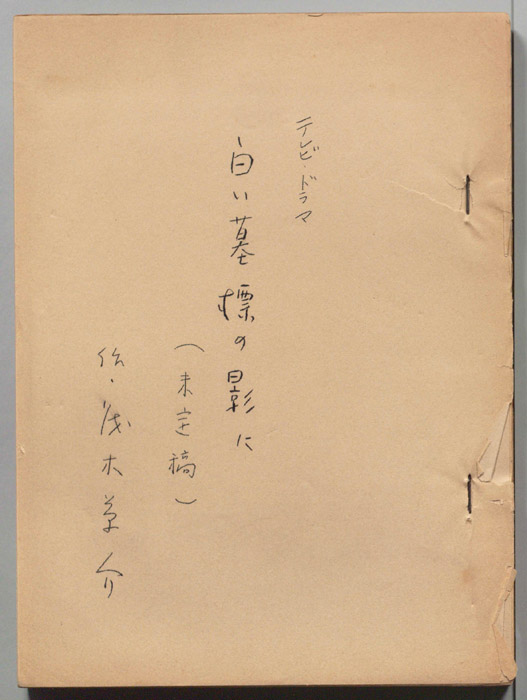 テレビ・ドラマ
白い墓標の影に
（未定稿）
作・茂木草介